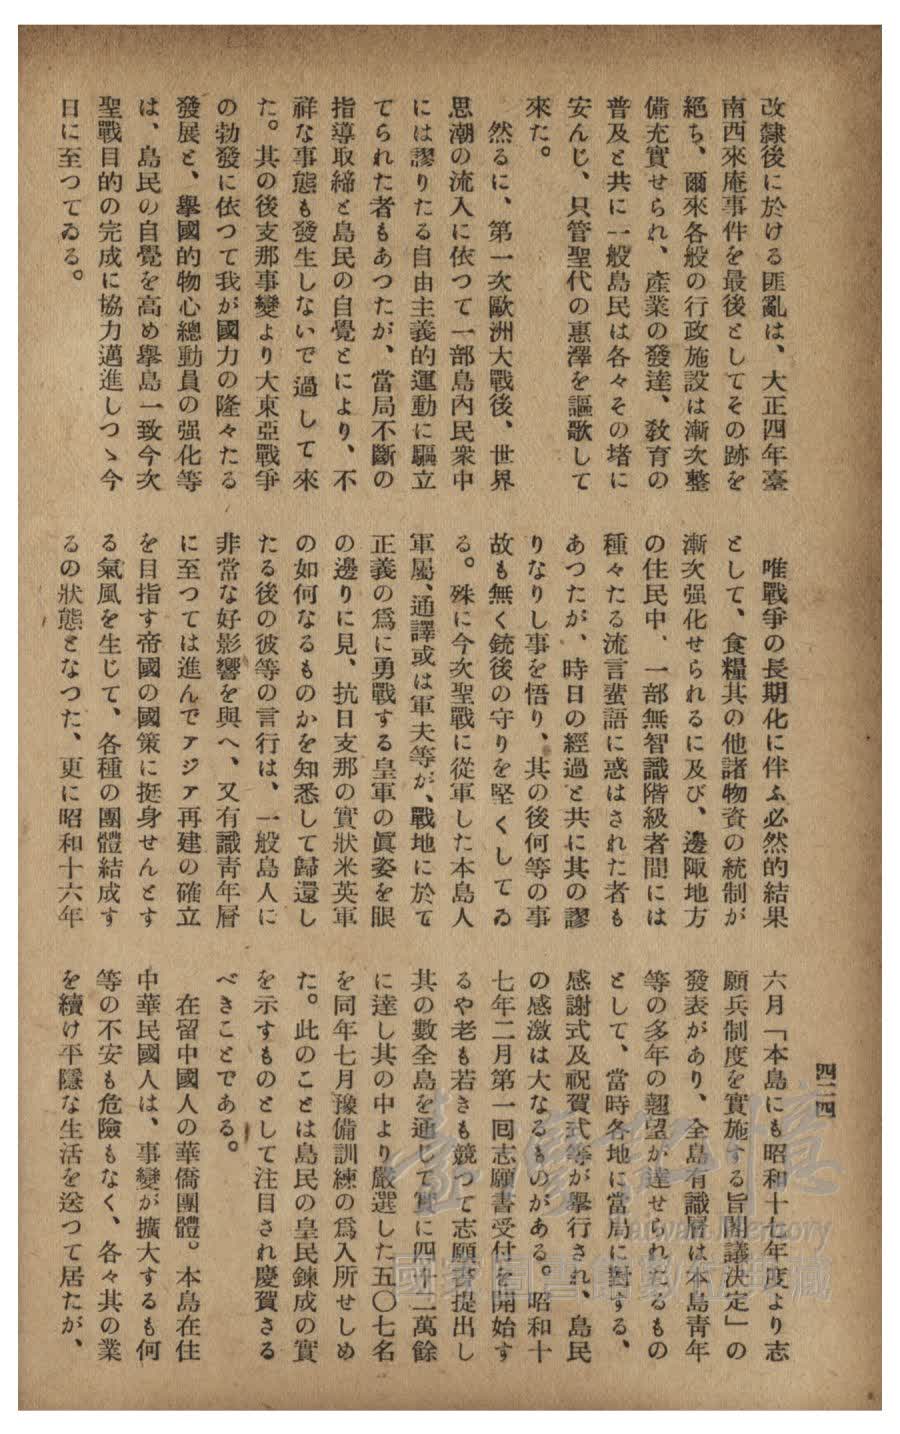 改隸後に於ける匪亂は、大正四年臺
南西來庵事件を最後としてその跡を
絕ち、爾來各般の行政施設は漸次整
備充實せられ、產業の發達、敎育の
普及と共に一般島民は各々その堵に
安んじ、只管聖代の惠澤を謳歌して
來た。
然るに、第一次歐洲大戰後、世界
思潮の流入に依つて一部島內民衆中
には謬りたる自由主義的運動に驅立
てられた者もあつたが、當局不斷の
指導取締と島民の自覺とにより、不
祥な事態も發生しないで過して來
た。其の後支那事變より大東亞戰爭
の勃發に依つて我が國力の隆々たる
發展と、擧國的物心總動員の强化等
は、島民の自覺を高め擧島一致今次
聖戰目的の完成に協力邁進しつゝ今
日に至つてゐる。
唯戰爭の長期化に伴ふ必然的結果
として、食糧其の他諸物資の統制が
漸次强化せられるに及び、邊陬地方
の住民中、一部無智識階級者間には
種々たる流言蜚語に惑はされた者も
あつたが、時日の經過と共に其の謬
りなりし事を悟り、其の後何等の事
故も無く銃後の守りを堅くしてゐ
る。殊に今次聖戰に從軍した本島人
軍屬、通譯或は軍夫等が、戰地に於て
正義の爲に勇戰する皇軍の眞姿を眼
の邊りに見、抗日支那の實狀米英軍
の如何なるものかを知悉して歸還し
たる後の彼等の言行は、一般島人に
非常な好影響を與へ、又有識靑年層
に至つては進んでアジア再建の確立
を目指す帝國の國策に挺身せんとす
る氣風を生じて、各種の團體結成す
るの狀態となつた、更に昭和十六年
六月「本島にも昭和十七年度より志
願兵制度を實施する旨閣議決定」の
發表があり、全島有識層は本島靑年
等の多年の翹望が達せられたるもの
として、當時各地に當局に對する、
感謝式及祝賀式等が擧行され、島民
の感激は大なるものがある。昭和十
七年二月第一回志願書受付を開始す
るや老も若きも競つて志願書提出し
其の數全島を通じて實に四十二萬餘
に達し其の中より嚴選した五〇七名
を同年七月豫備訓練の爲入所せしめ
た。此のことは島民の皇民鍊成の實
を示すものとして注目され慶賀さる
べきことである。
在留中國人の華僑團體。本島在住
中華民國人は、事變が擴大するも何
等の不安も危險もなく、各々其の業
を續け平隱な生活を送つて居たが、
四二四
臺灣記憶
Taiwan Memory
國家圖書館數位典藏